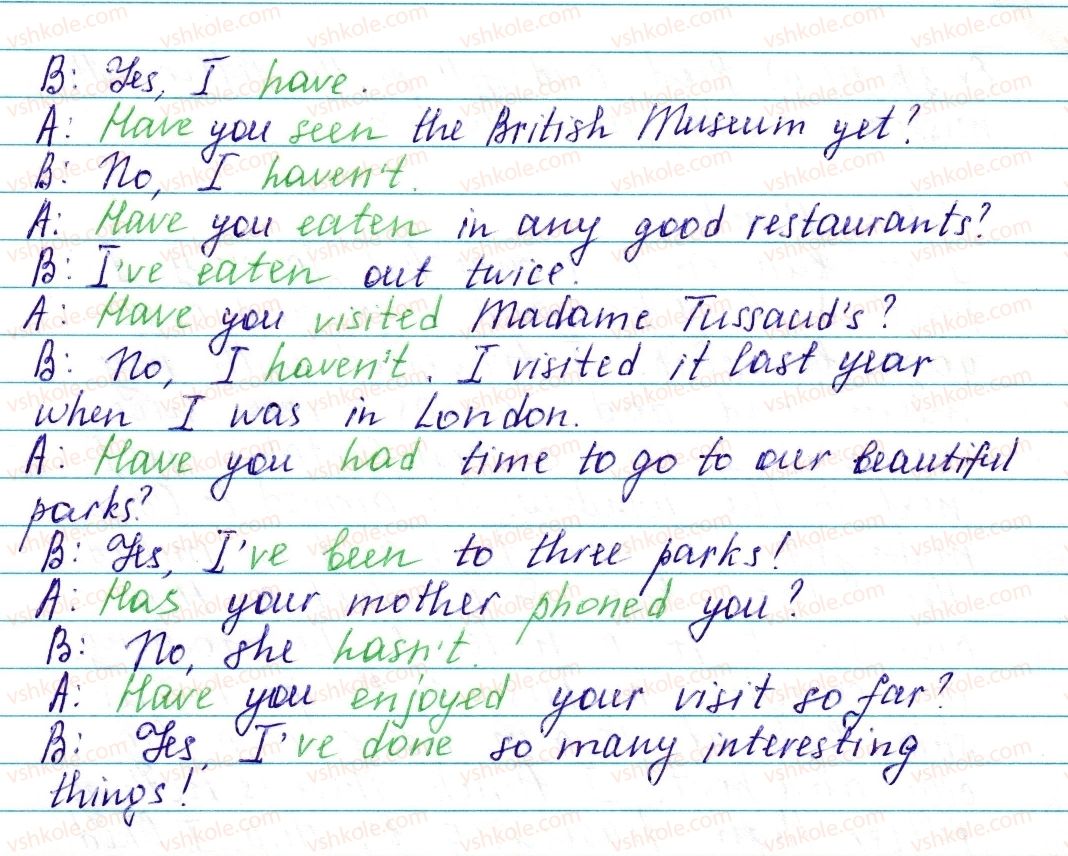 B: Yes, I have.
A: Have you seen the British Museum yet?
B: No, I haven't.
A: Have you eaten in any good restaurants?
B: I've eaten out twice.
A: Have you visited Madame Tussaud's?
B: No, I haven't. I visited it last year
when I was in London.
A: Have you had time to go to our beautiful
parks?
B: Yes, I've been to three parks!
A: Has your mother phoned you?
B: No, she hasn't.
A: Have you enjoyed your visit so far?
B: Yes, I've done so many interesting
things!